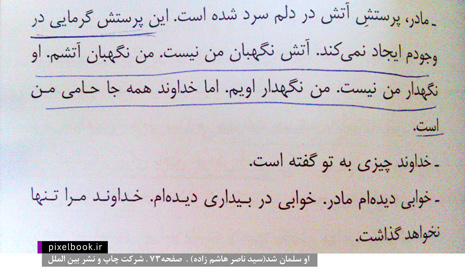 ـ مادر، پرستشِ آتش در دلم سرد شده است. این پرستش گرمایی در
وجودم ایجاد نمی‌کند. آتش نگهبان من نیست. من نگهبان آتشم. او
نگهدار من نیست. من نگهدار اویم. اما خداوند همه جا حامی من
است.
ـ خداوند چیزی به تو گفته است.
ـ خوابی دیده‌ام مادر. خوابی در بیداری دیده‌ام. خداوند مرا تنها
نخواهد گذاشت.
pixelbook.ir
او سلمان شد(سید ناصر هاشم زاده) . صفحه۷۳ . شرکت چاپ و نشر بین الملل